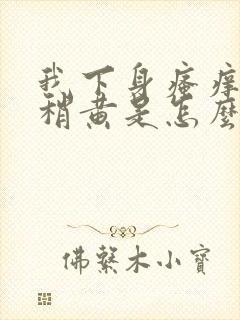 我下身瘙痒
稍黄是怎麽
佛系木小寶